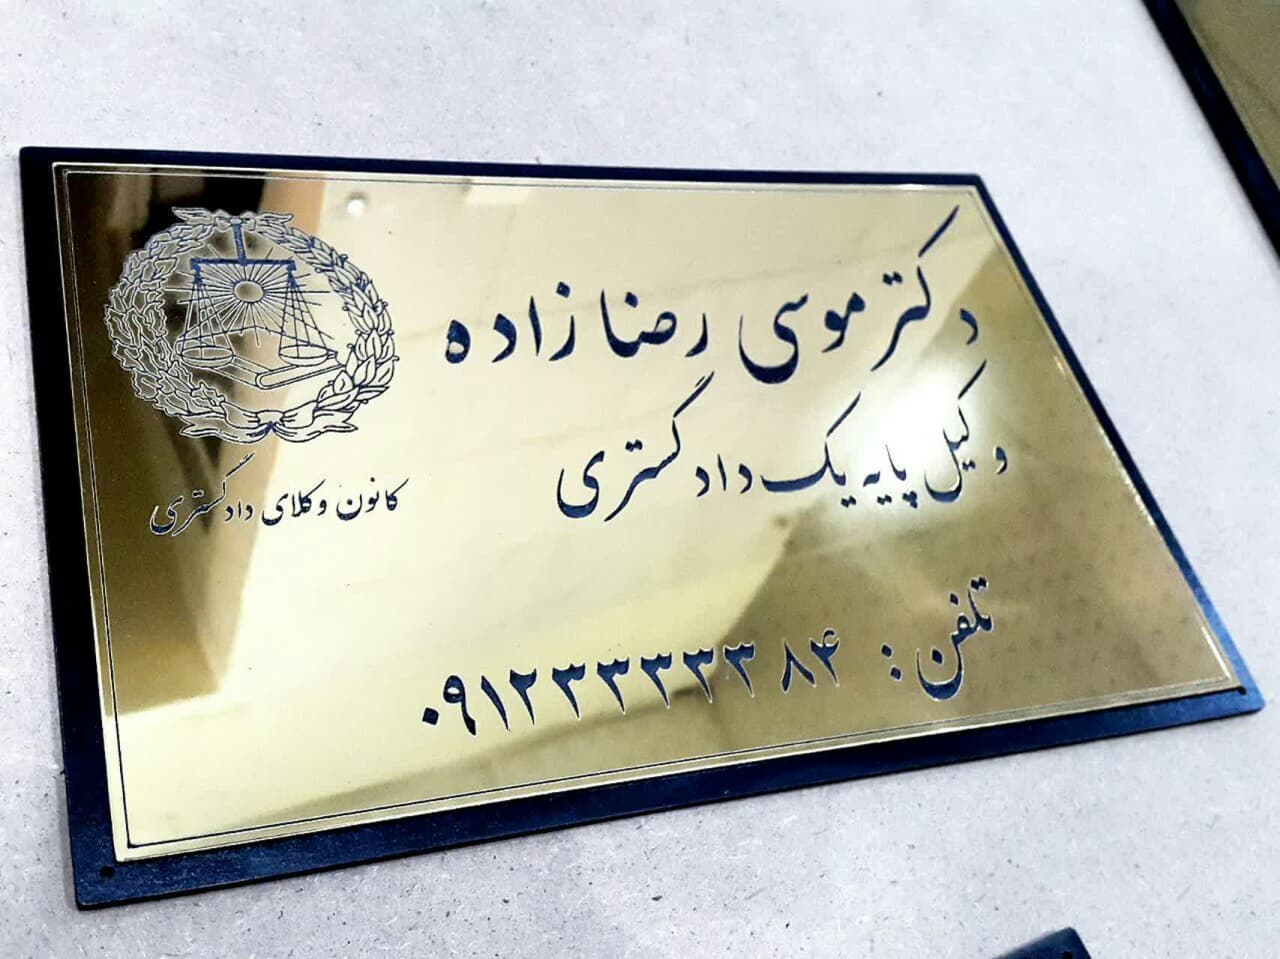 دکتر موسی رضا زاده
وکیل پایه یک دادگستری
کانون وکلای دادگستری
تلفن: ۰۹۱۲۳۳۳۳۳۸۴